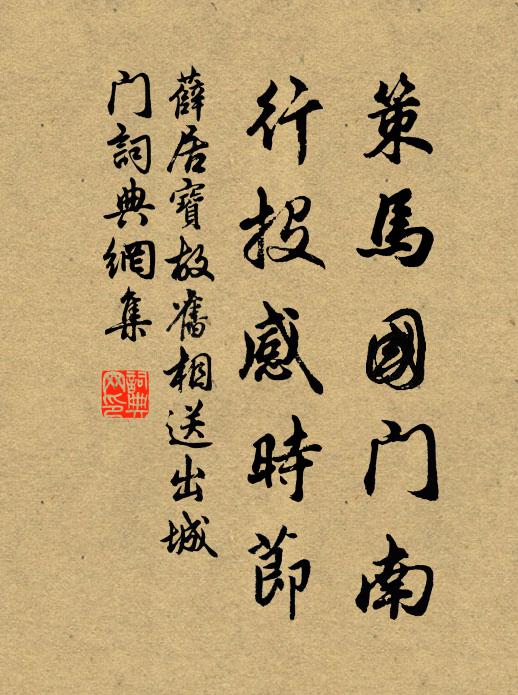 策馬國门南
行投感時節
薛居寶故舊相送出城
门詞典網集